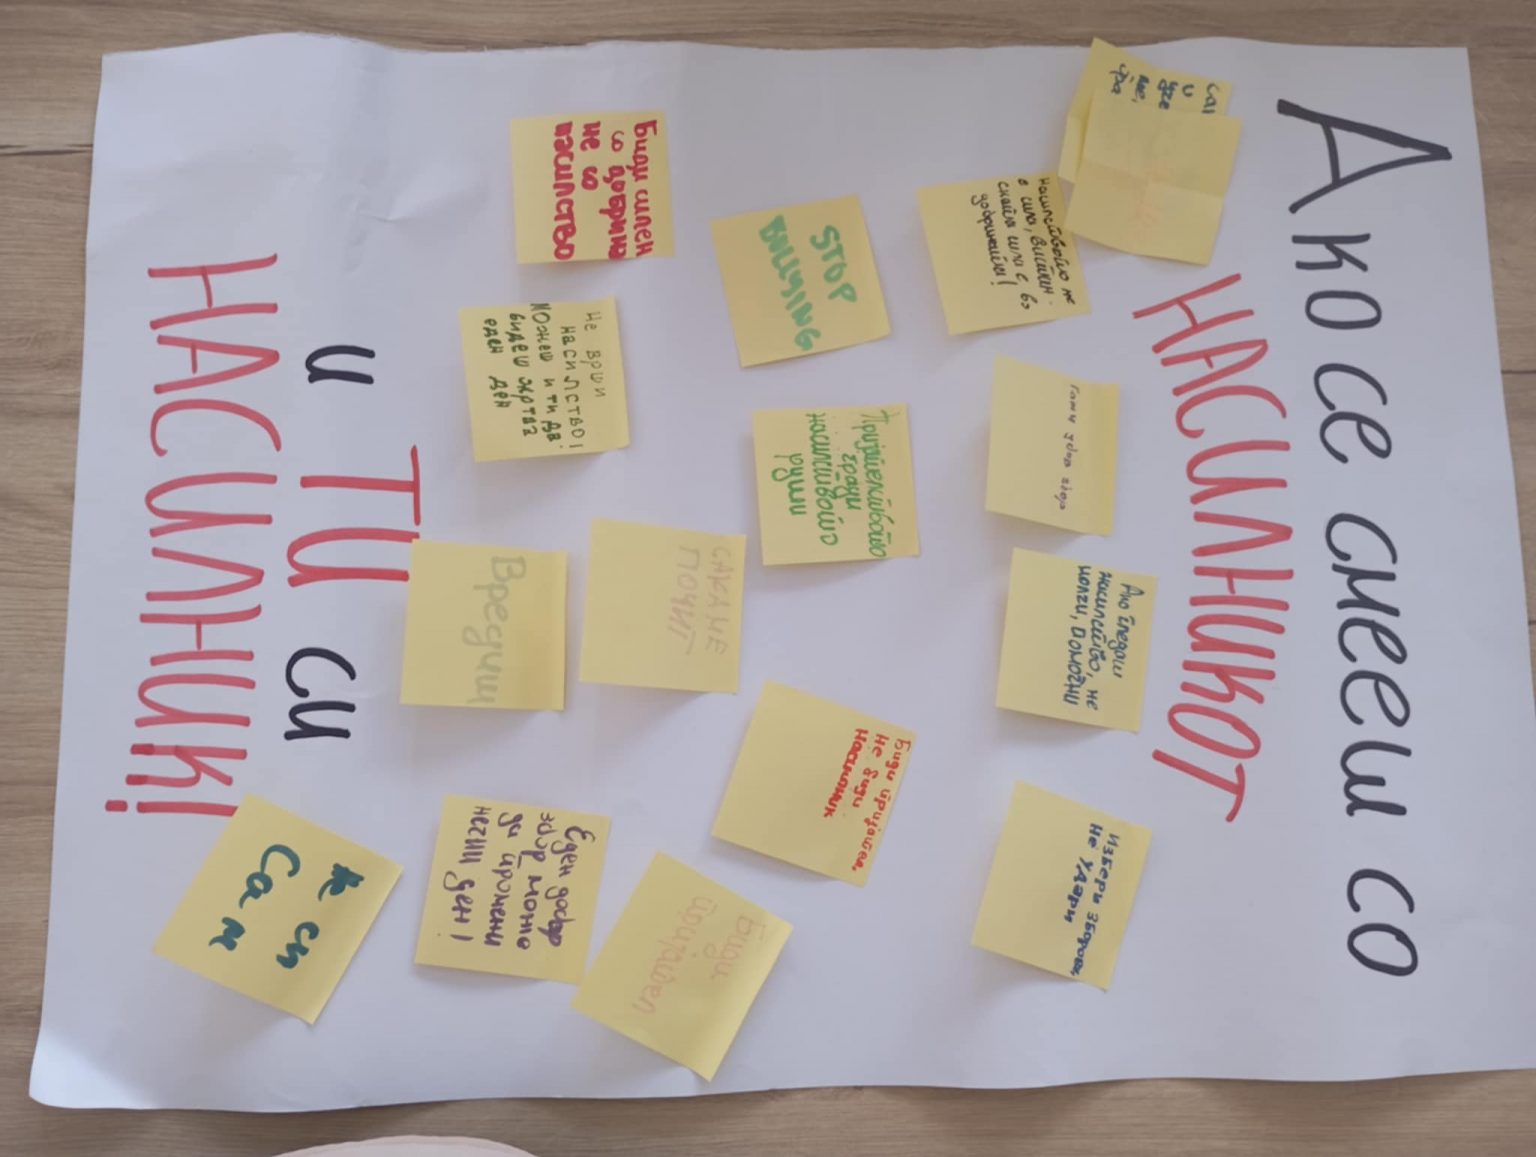 Ако се смееш со
НАСИЛНИКОТ
Насилството не
е сила, вистин-
ската сила е во
добрината!
Ако гледаш
насилство, не
молчи, помогни
Избери зборови,
не удари
STOP
BULLYING
Пријателството
гради
насилството
руши
Биди пријател,
не биди
насилник
Биди силен
со добрина
не со
насилство
Не врши
насилство!
Можеш и ти да
бидеш жртва
еден ден
САКАМЕ
ПОЧИТ
Вредиш
Биди
пријател
Еден добар
збор може
да промени
нечии ден!
Не си
сам
и
ТИ СИ
НАСИЛНИК!